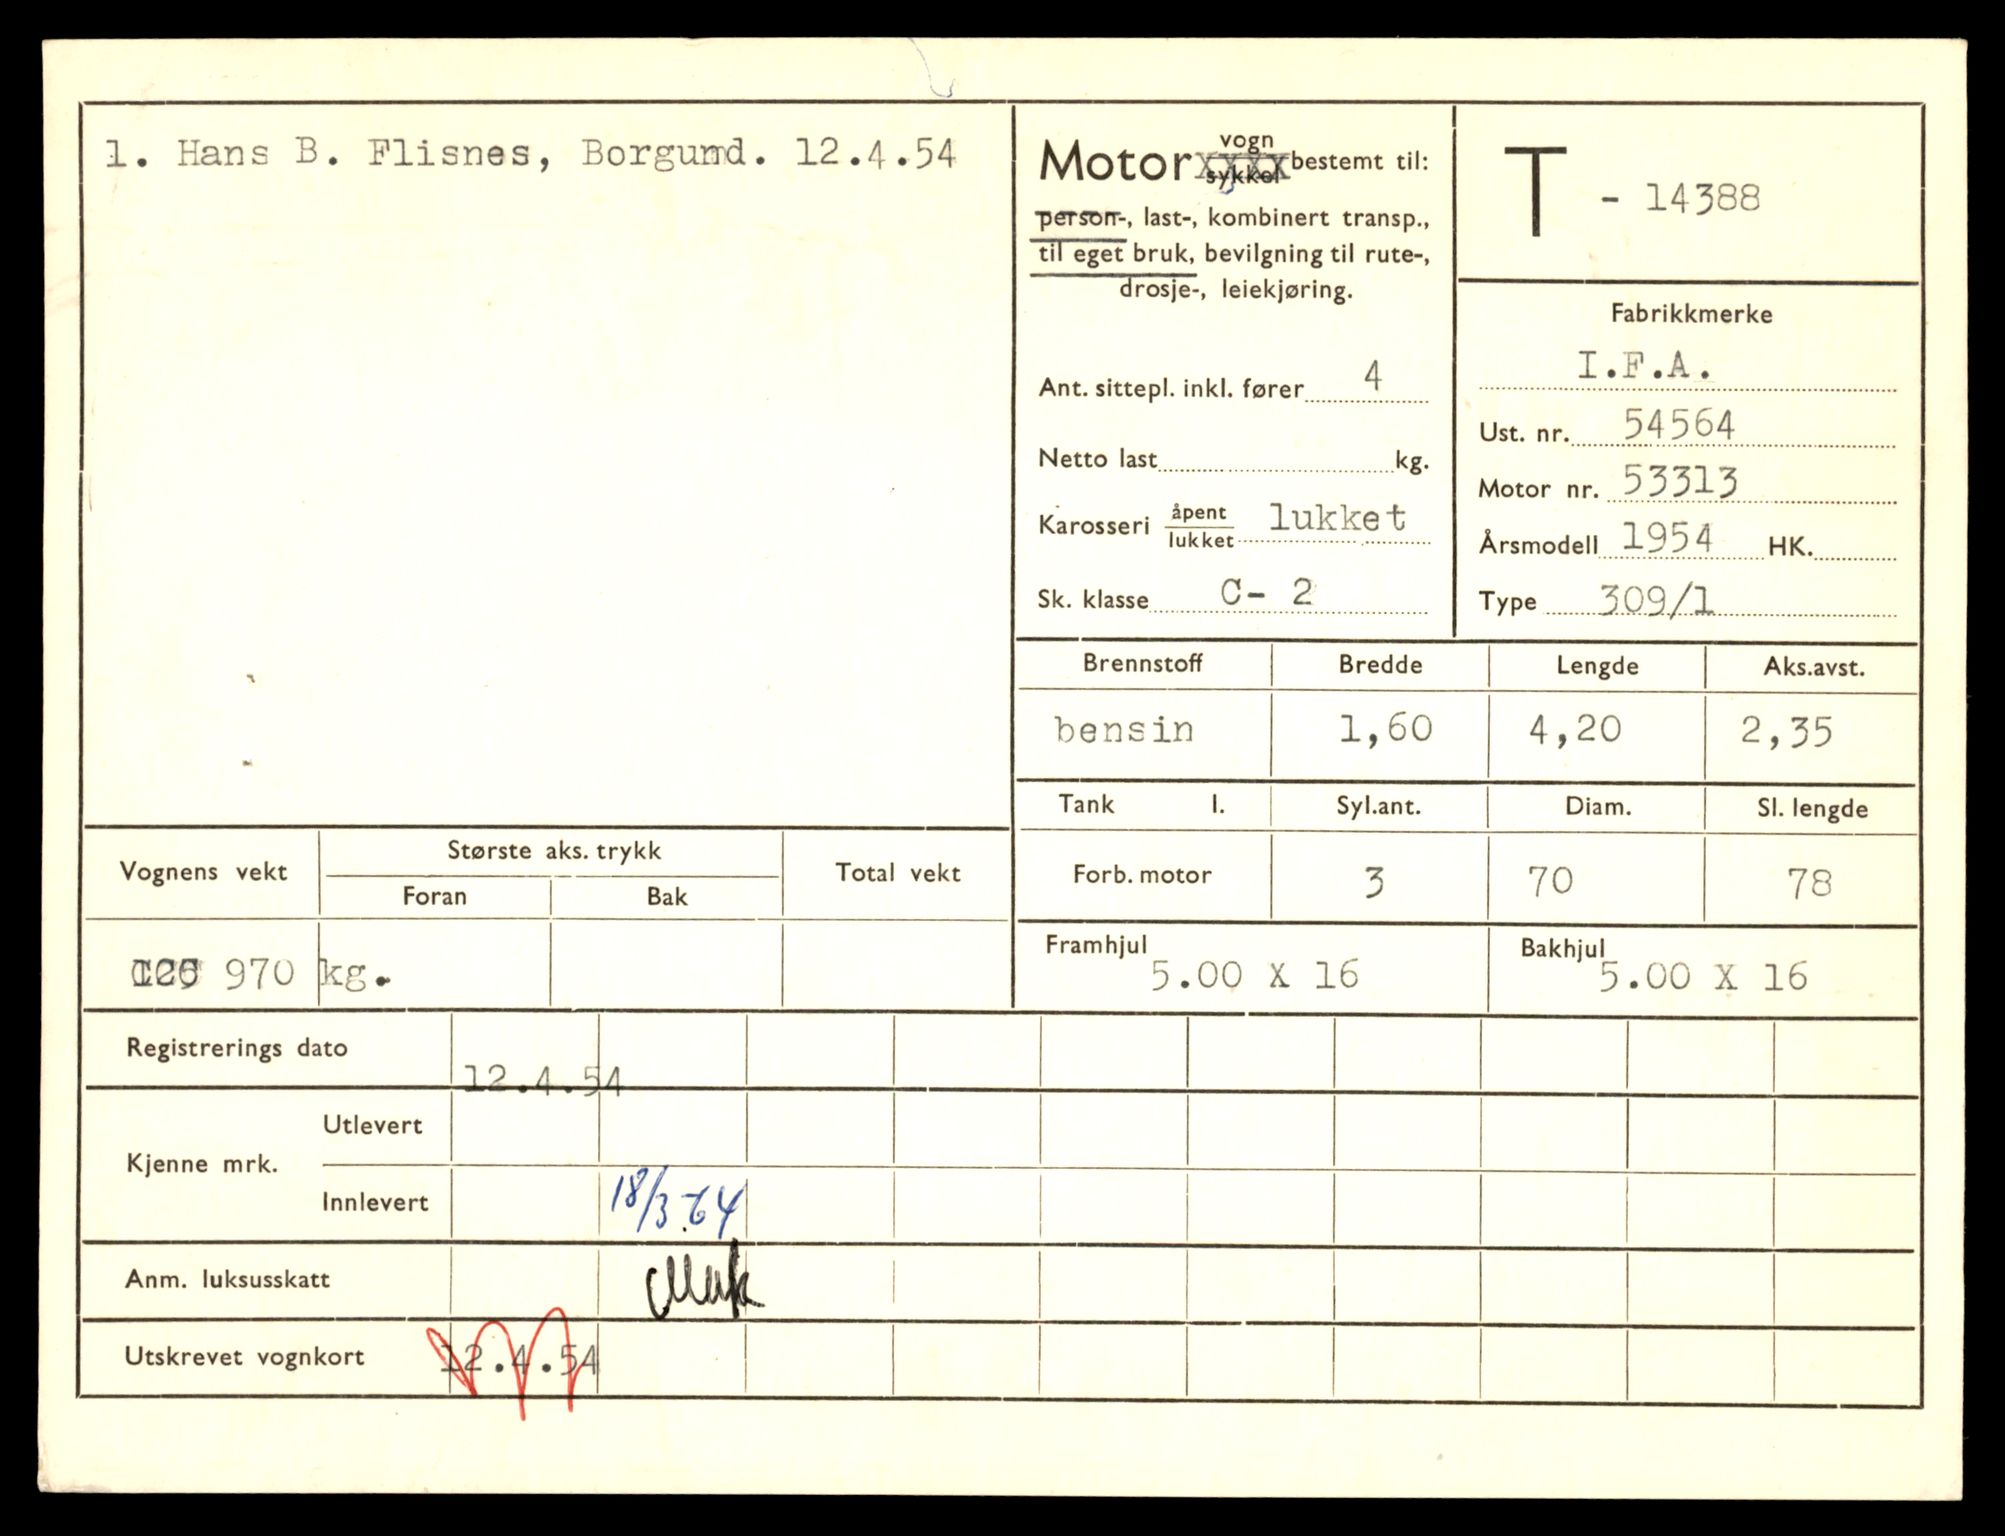 1. Hans B. Flisnes, Borgund. 12.4.54
Motor vogn sykkel bestemt til:
person-, last-, kombinert transp.,
til eget bruk, bevilgning til rute-,
drosje-, leiekjøring.
Ant. sittepl. inkl. fører 4
Netto last kg.
Karosseri åpent lukket lukket
Sk. klasse C- 2
T - 14388
Fabrikkmerke
I.F.A.
Ust. nr. 54564
Motor nr. 53313
Årsmodell 1954 HK.
Type 309/1
Brennstoff Bredde Lengde Aks.avst.
bensin 1,60 4,20 2,35
Tank l. Syl.ant. Diam. Sl. lengde
Forb. motor 3 70 78
Framhjul 5.00 X 16 Bakhjul 5.00 X 16
Vognens vekt Største aks. trykk Total vekt
Foran Bak
970 kg.
Registrerings dato 12.4.54
Kjenne mrk. Utlevert
Innlevert 18/3-64
Anm. luksusskatt
Utskrevet vognkort 12.4.54